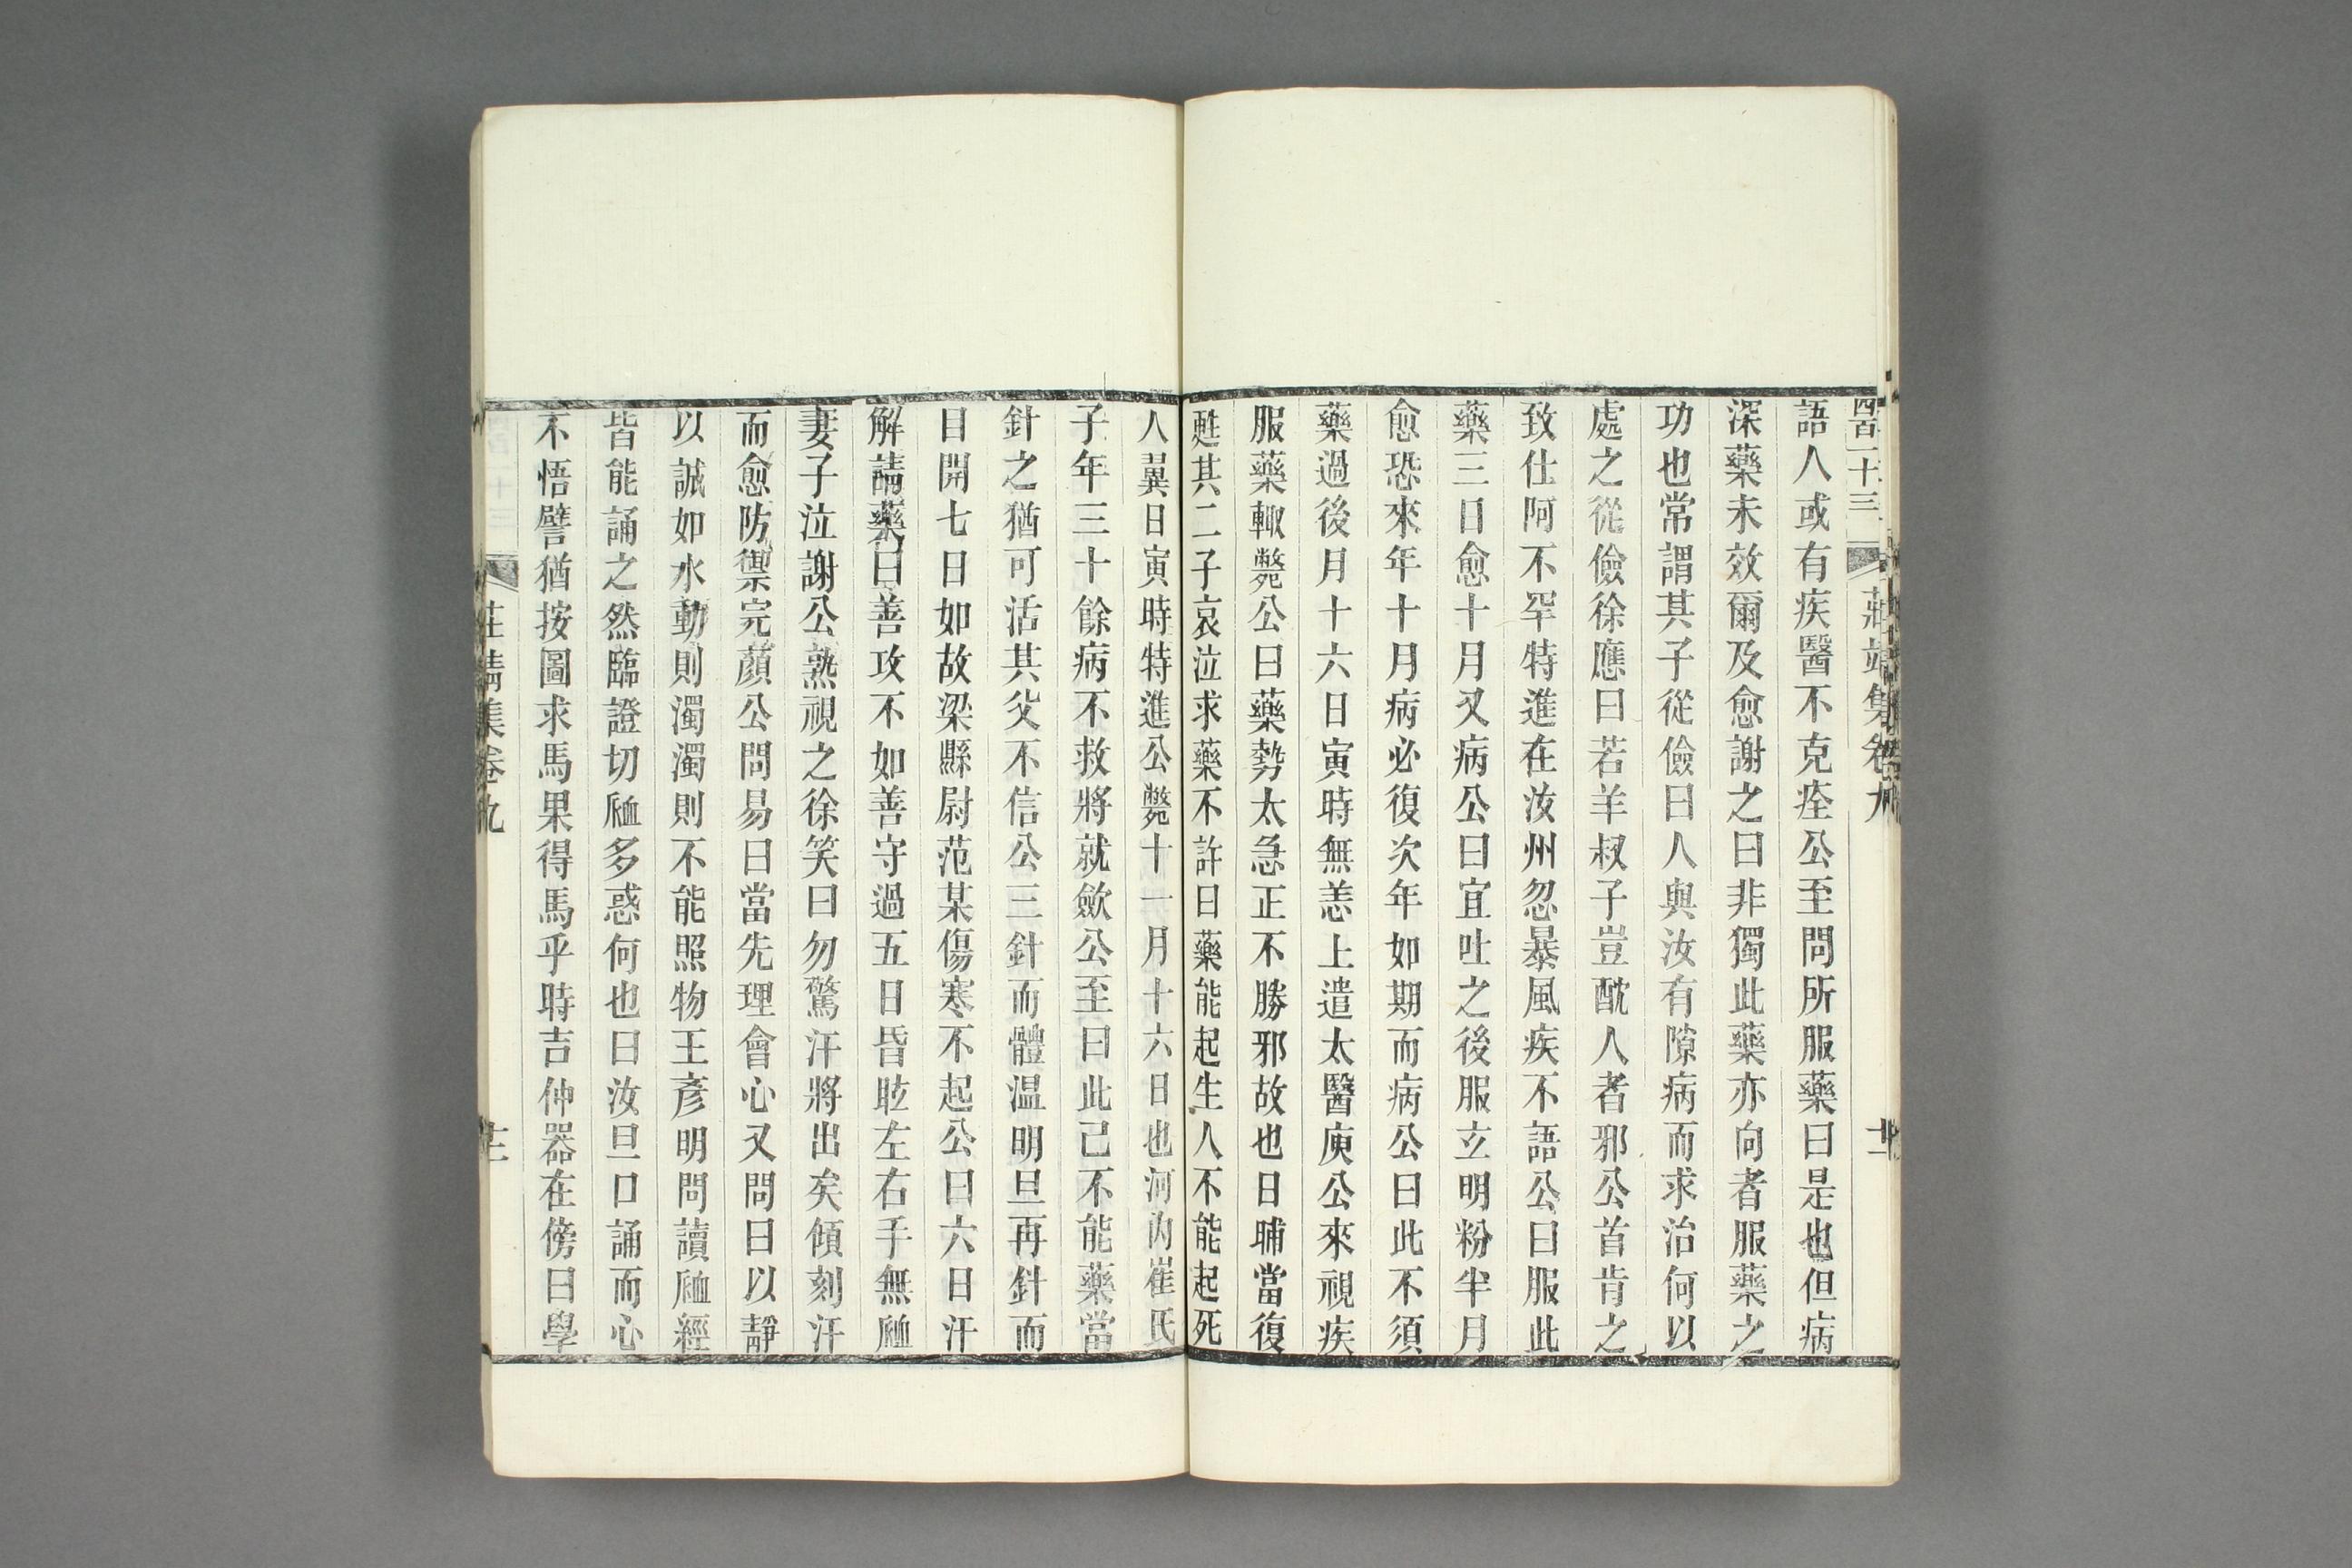 四百二十三 莊靖集卷九 十二
語人或有疾醫不克痊公至問所服藥曰是也但病
深藥未效爾及愈謝之曰非獨此藥亦向者服藥之
功也常謂其子從儉曰人與汝有隙病而求治何以
處之從儉徐應曰若羊叔子豈酖人者邪公首肯之
致仕阿不罕特進在汝州忽暴風疾不語公曰服此
藥三日愈十月又病公曰宜吐之後服玄明粉半月
愈恐來年十月病必復次年如期而病公曰此不須
藥過後月十六日寅時無恙上遣太醫庾公來視疾
服藥輙斃公曰藥勢太急正不勝邪故也日晡當復
甦其二子哀泣求藥不許曰藥能起生人不能起死
人翼日寅時特進公斃十一月十六日也河内崔氏
子年三十餘病不救將就歛公至曰此已不能藥當
針之猶可活其父不信公三針而體温明旦再針而
目開七日如故梁縣尉范某傷寒不起公曰六日汗
解請藥曰善攻不如善守過五日昏眩左右手無脉
妻子泣謝公熟視之徐笑曰勿驚汗將出矣傾刻汗
而愈防禦完顔公問易曰當先理會心又問曰以靜
以誠如水動則濁濁則不能照物王彥明問讀脉經
皆能誦之然臨證切脉多惑何也曰汝旦口誦而心
不悟譬猶按圖求馬果得馬乎時吉仲器在傍曰學
莊靖集卷九